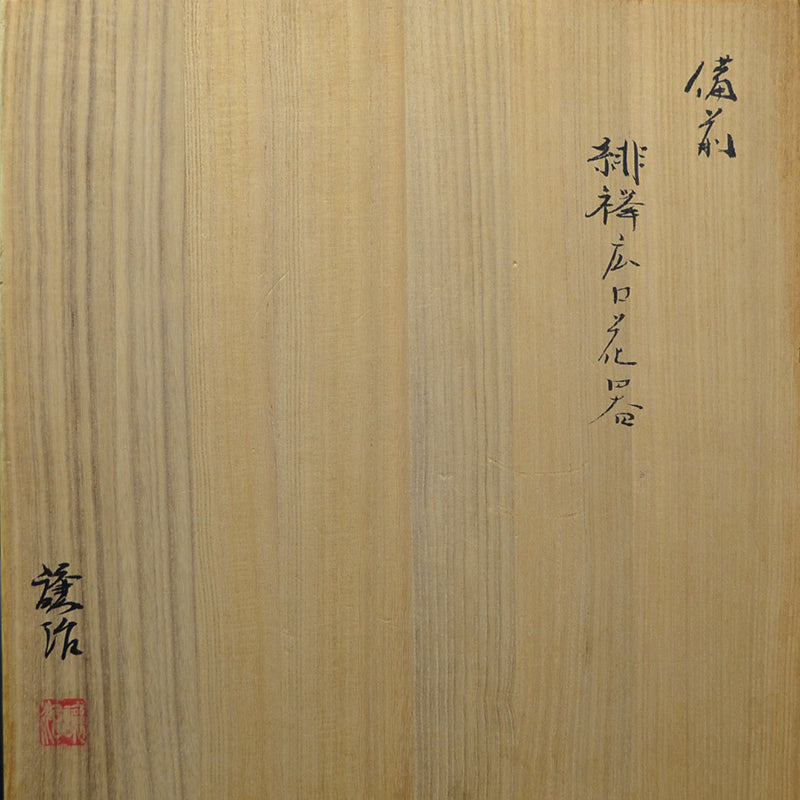 備前
緋襷広口花器
謙治